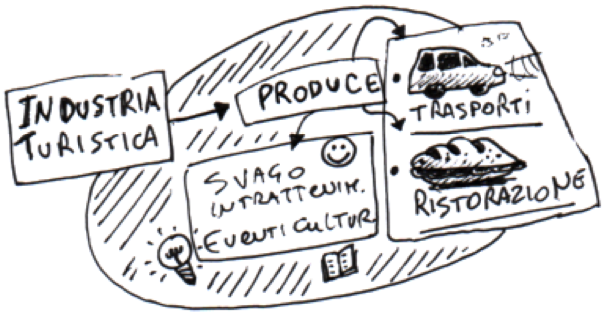 INDUSTRIA
TURISTICA
PRODUCE
TRASPORTI
RISTORAZIONE
SVAGO
INTRATTENIM.
EVENTI CULTUR